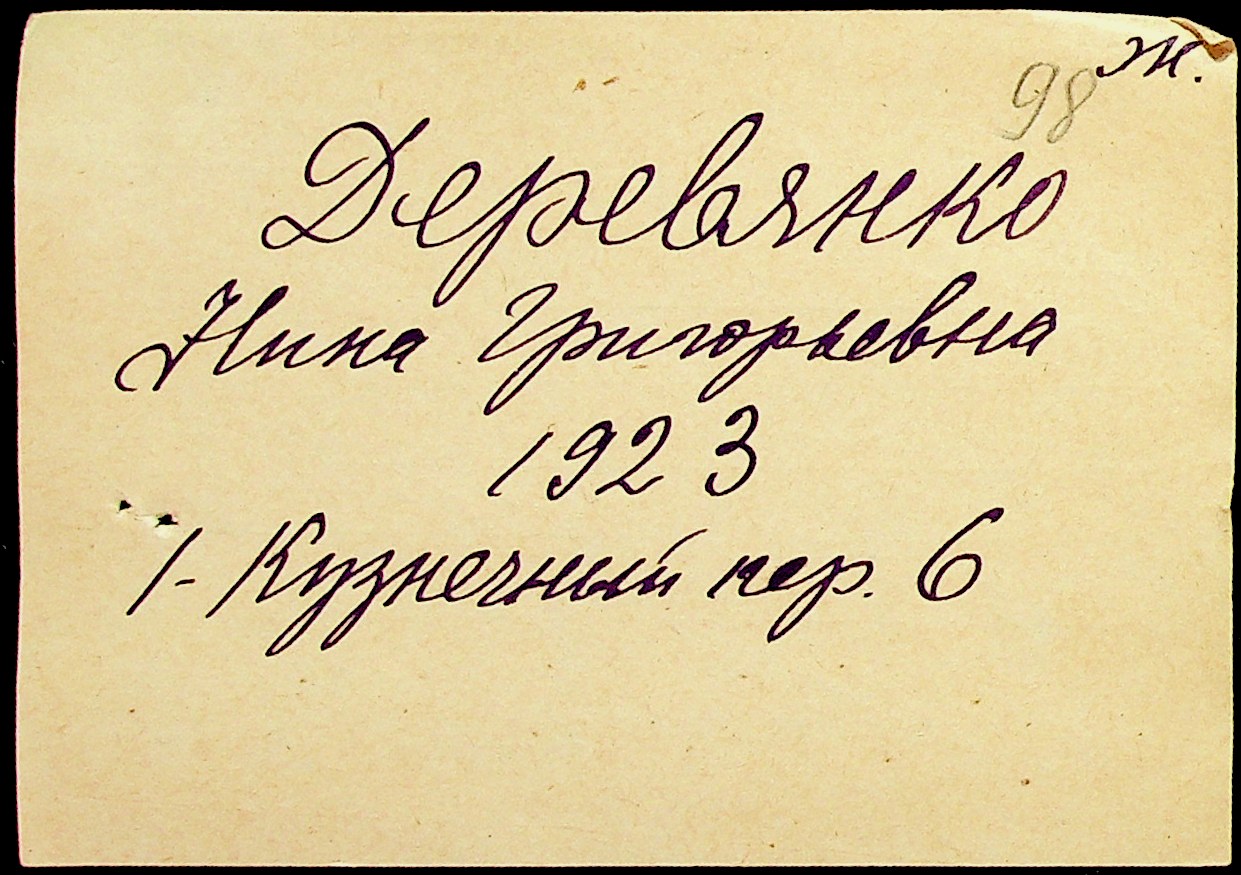 ж.
98
Деревянко
Нина Григорьевна
1923
1-Кузнечный пер. 6